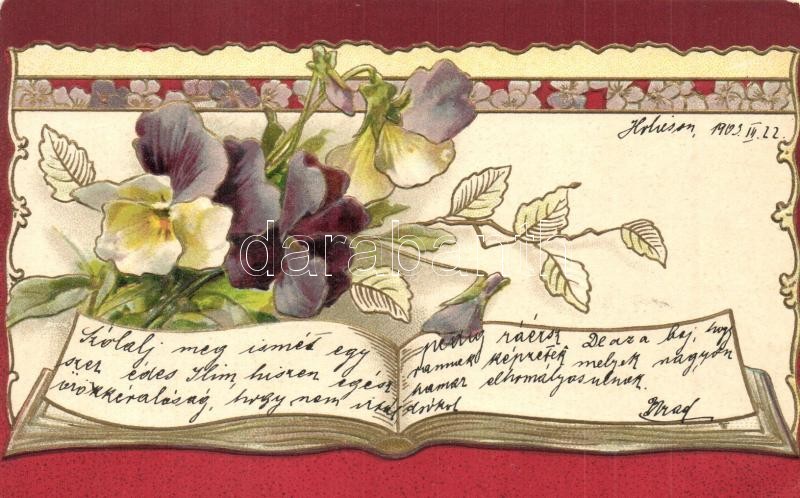 1903. III. 22.
Szólalj meg ismét egy
szer édes Ilim, hiszen egész
örökkévalóság, hogy nem írtál
pedig ráérsz. De az a baj, hogy
vannak képzetek melyek nagyon
hamar elhomályosulnak.
darabanth